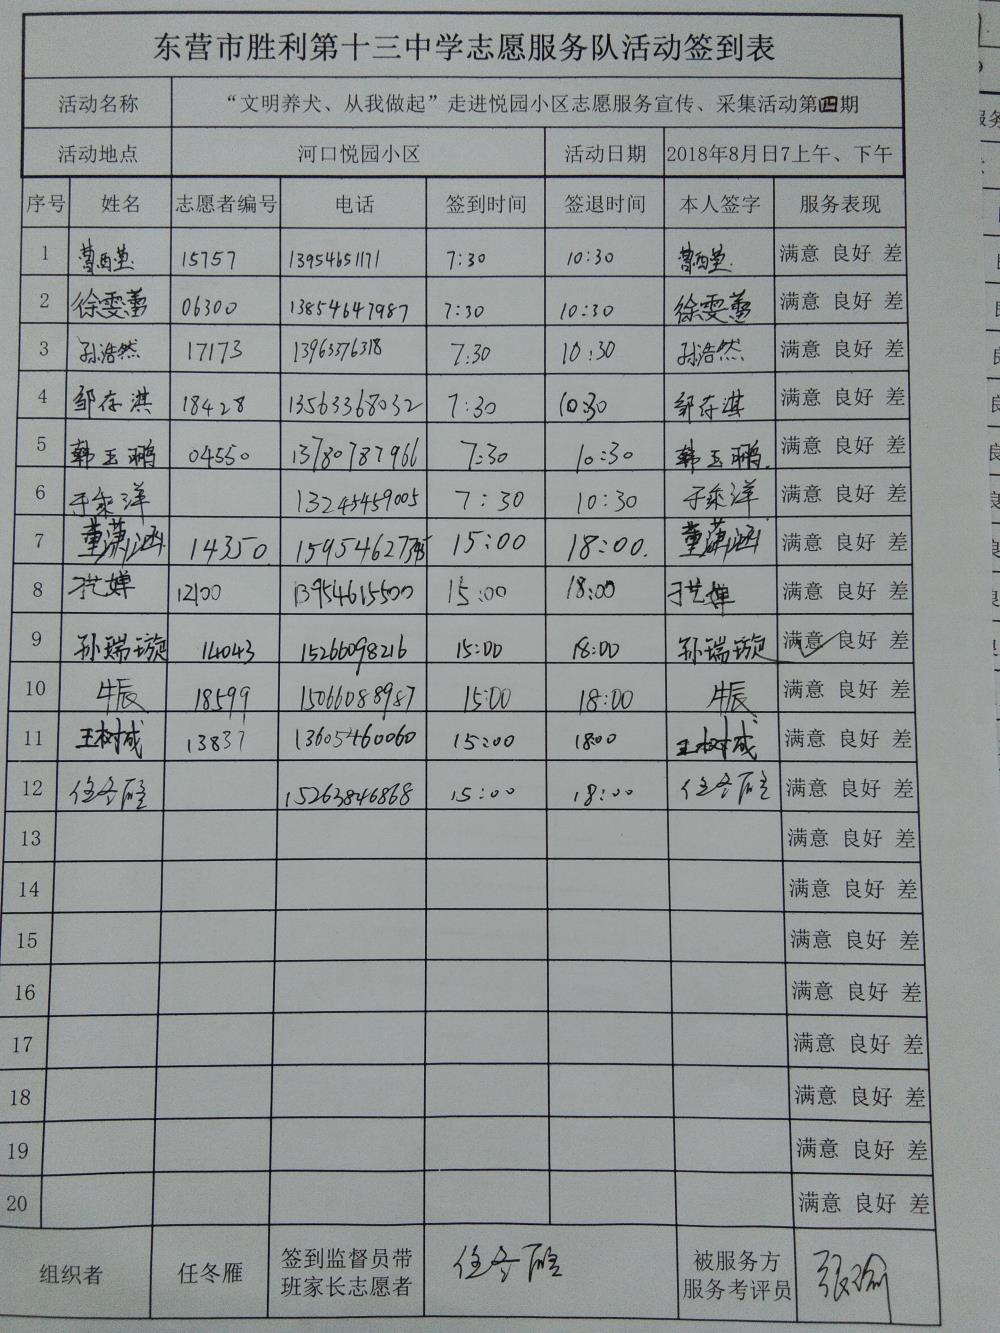 东营市胜利第十三中学志愿服务队活动签到表
活动名称 “文明养犬、从我做起”走进悦园小区志愿服务宣传、采集活动第四期
活动地点 河口悦园小区 活动日期 2018年8月日7上午、下午
序号 姓名 志愿者编号 电话 签到时间 签退时间 本人签字 服务表现
1 15757 13954651171 7:30 10:30 满意 良好 差
2 徐雯蕾 06300 13854647987 7:30 10:30 徐雯蕾 满意 良好 差
3 孙浩然 17173 13963376318 7:30 10:30 孙浩然 满意 良好 差
4 邹存淇 18428 13563368032 7:30 10:30 邹存淇 满意 良好 差
5 韩玉鹏 04550 13780787966 7:30 10:30 韩玉鹏 满意 良好 差
6 于乘洋 13245459005 7:30 10:30 于乘洋 满意 良好 差
7 董潇涵 14350 15:00 18:00 董潇涵 满意 良好 差
8 于艺婵 12100 13954615500 15:00 18:00 于艺婵 满意 良好 差
9 孙瑞璇 14043 15266098216 15:00 18:00 孙瑞璇 满意 良好 差
10 牛辰 18599 15066088987 15:00 18:00 牛辰 满意 良好 差
11 王树成 13837 13605460060 15:00 18:00 王树成 满意 良好 差
12 任冬雁 15263846868 15:00 18:00 任冬雁 满意 良好 差
13 满意 良好 差
14 满意 良好 差
15 满意 良好 差
16 满意 良好 差
17 满意 良好 差
18 满意 良好 差
19 满意 良好 差
20 满意 良好 差
组织者 任冬雁 签到监督员带班家长志愿者 任冬雁 被服务方服务考评员